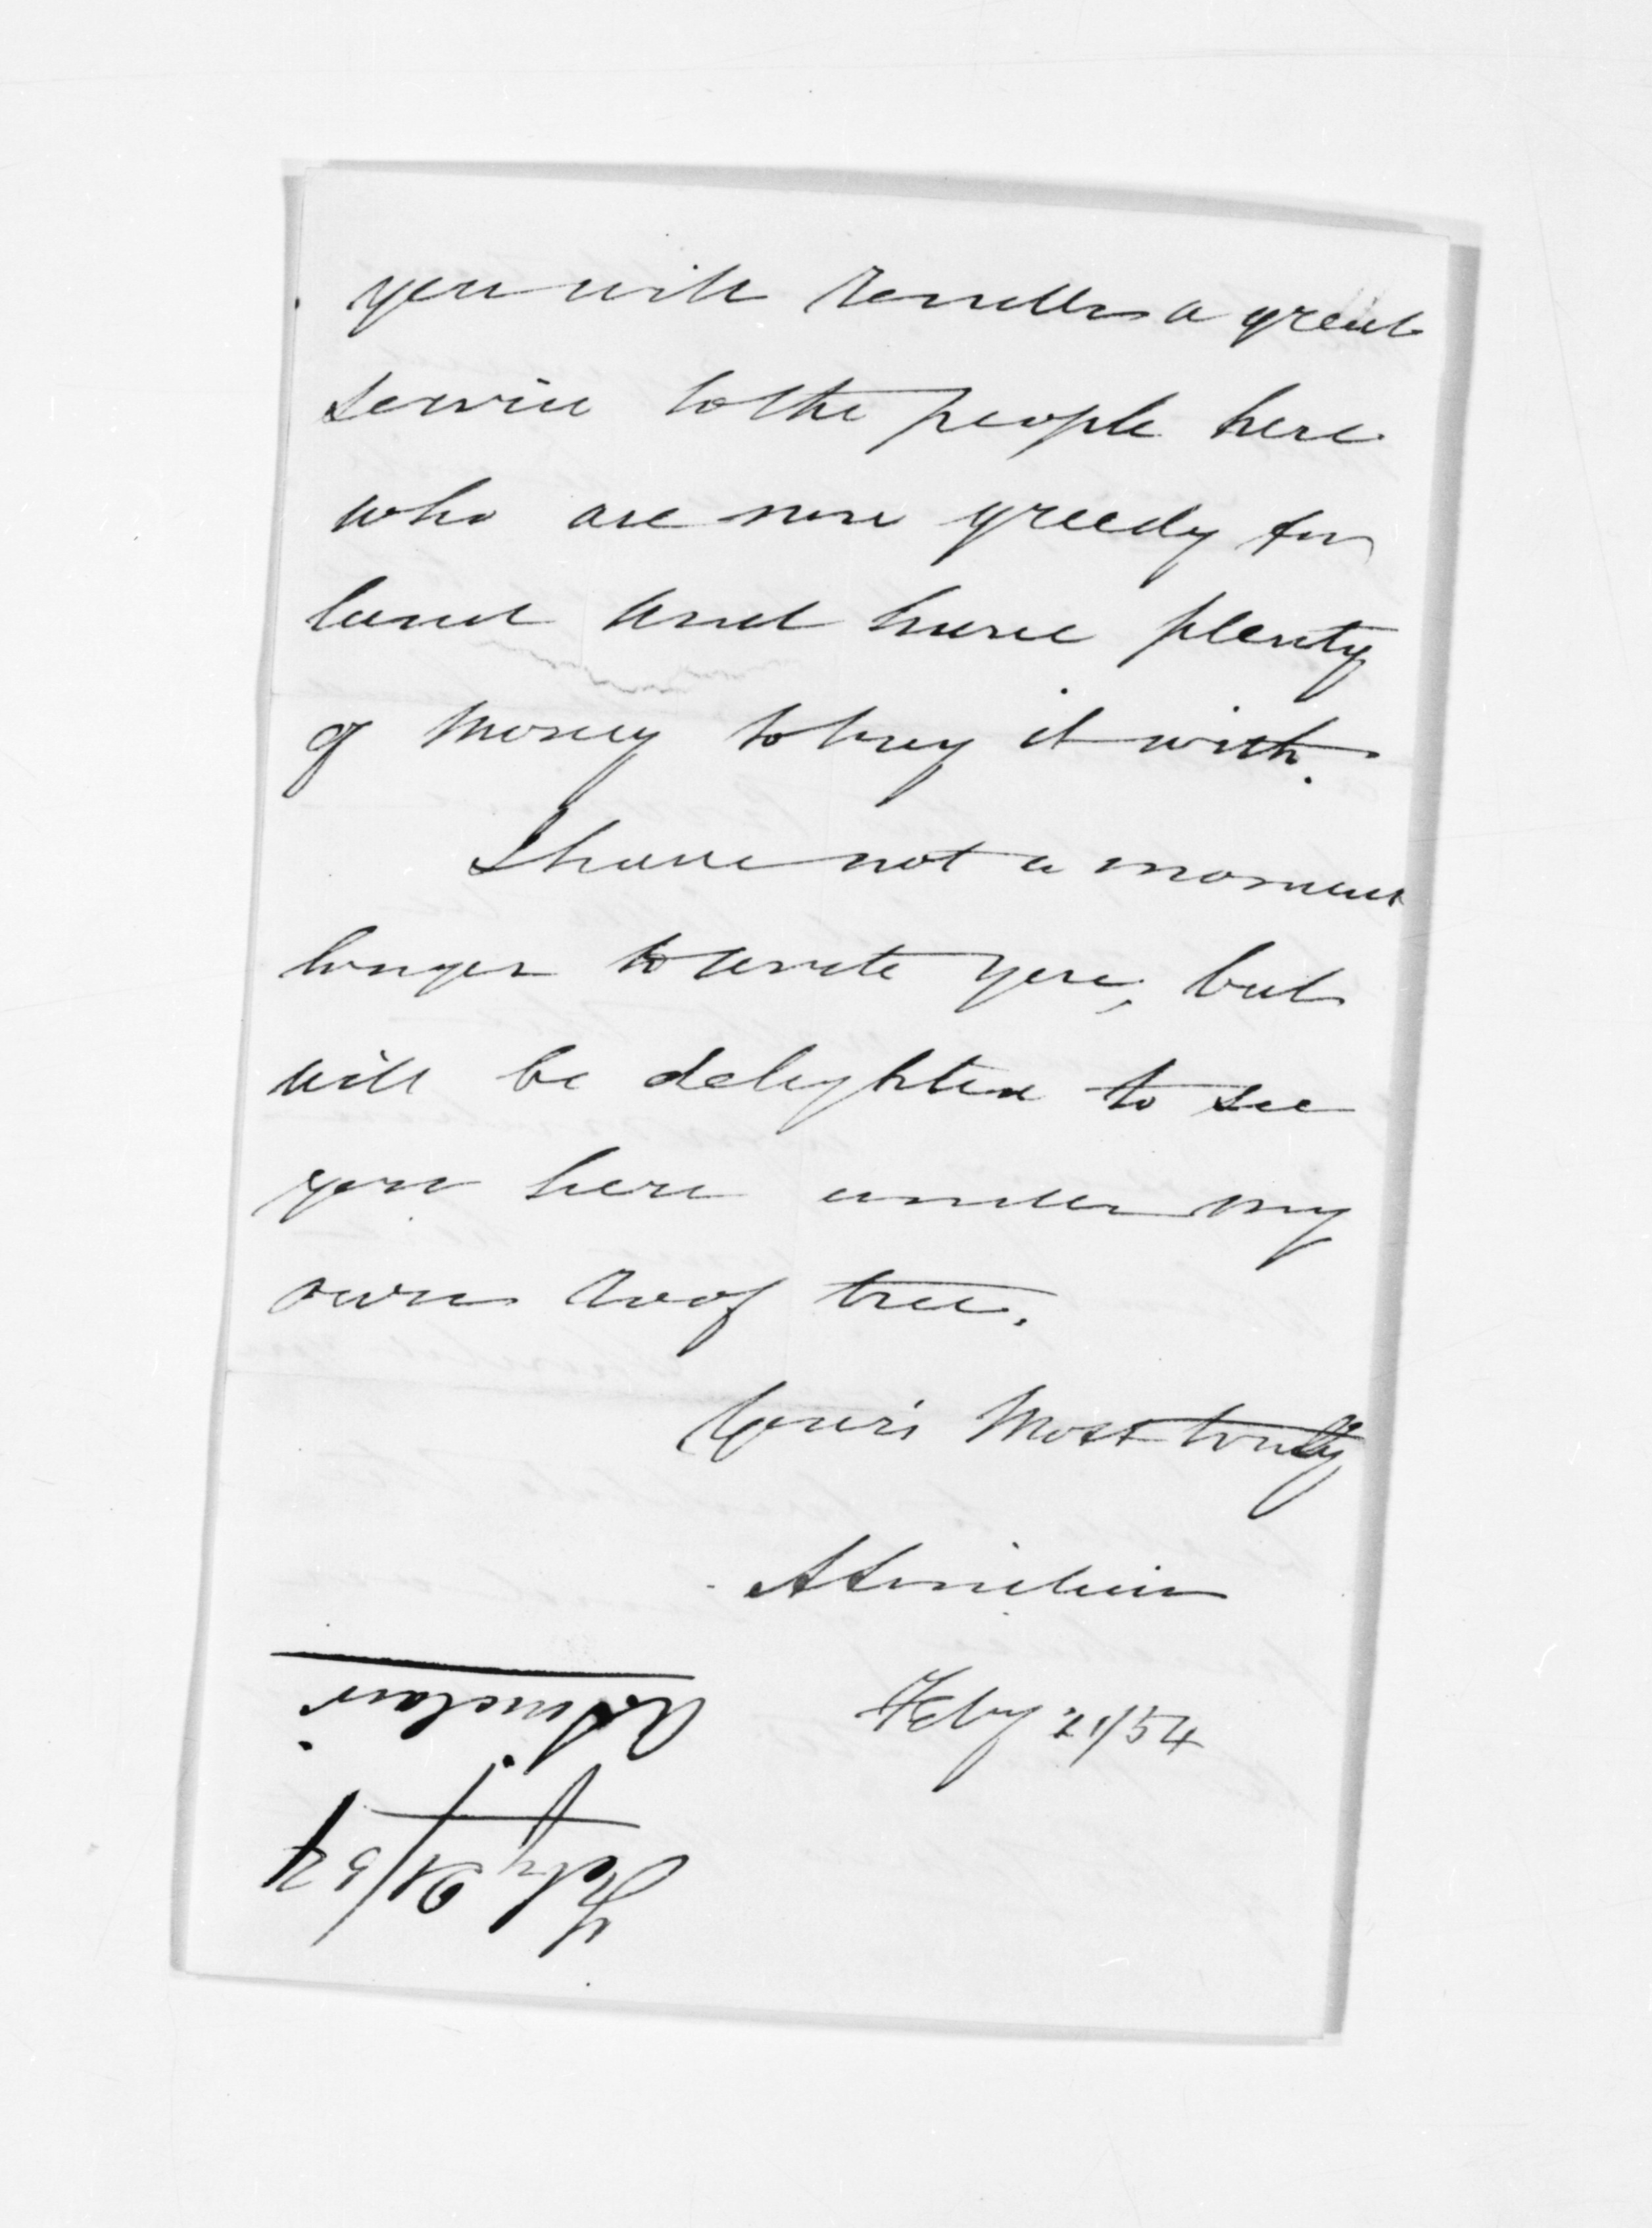 you will render a great
service to the people here
who are now greedy for
land and have plenty
of money to buy it with.
I have not a moment
longer to write you, but
will be delighted to see
you here under my
own roof tree.
Your's Most truly
A Sinclair
Feby 21/54
A Sinclair
Feby 21/54